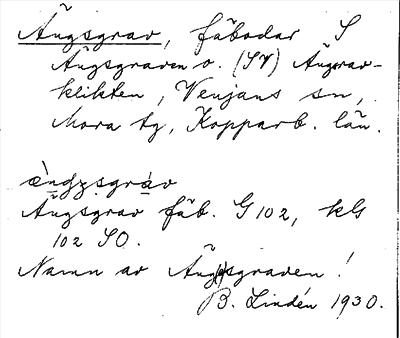 Ängsgrav, fäbodar S
Ängsgraven o. (SV) Ängrav-
klikten, Venjans sn,
Mora tg, Kopparb. län.
Ängsgrav fäb. G 102, kG
102 SO.
Namn av Ängsgraven!
B. Lindén 1930.